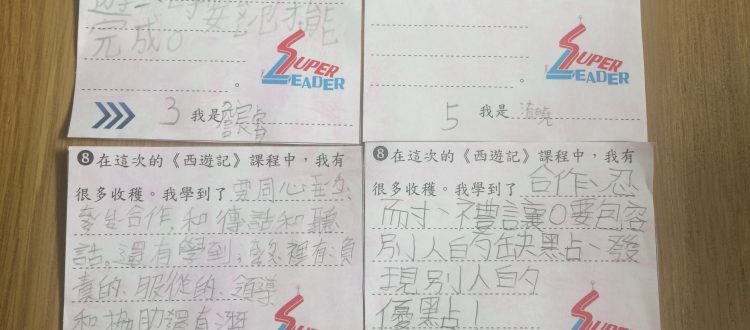 完成。
SUPER
LEADER
。
3 我是
SUPER
LEADER
。
5 我是
8 在這次的《西遊記》課程中，我有
很多收穫。我學到了要同心
合作，和傳話和聽
話。還有學到，裡有負
責的、服從的、領導
和協助還有
SUPER
8 在這次的《西遊記》課程中，我有
很多收穫。我學到了合作、忍
耐、禮讓。要包容
別人的缺點、發
現別人的
優點！
SUPER